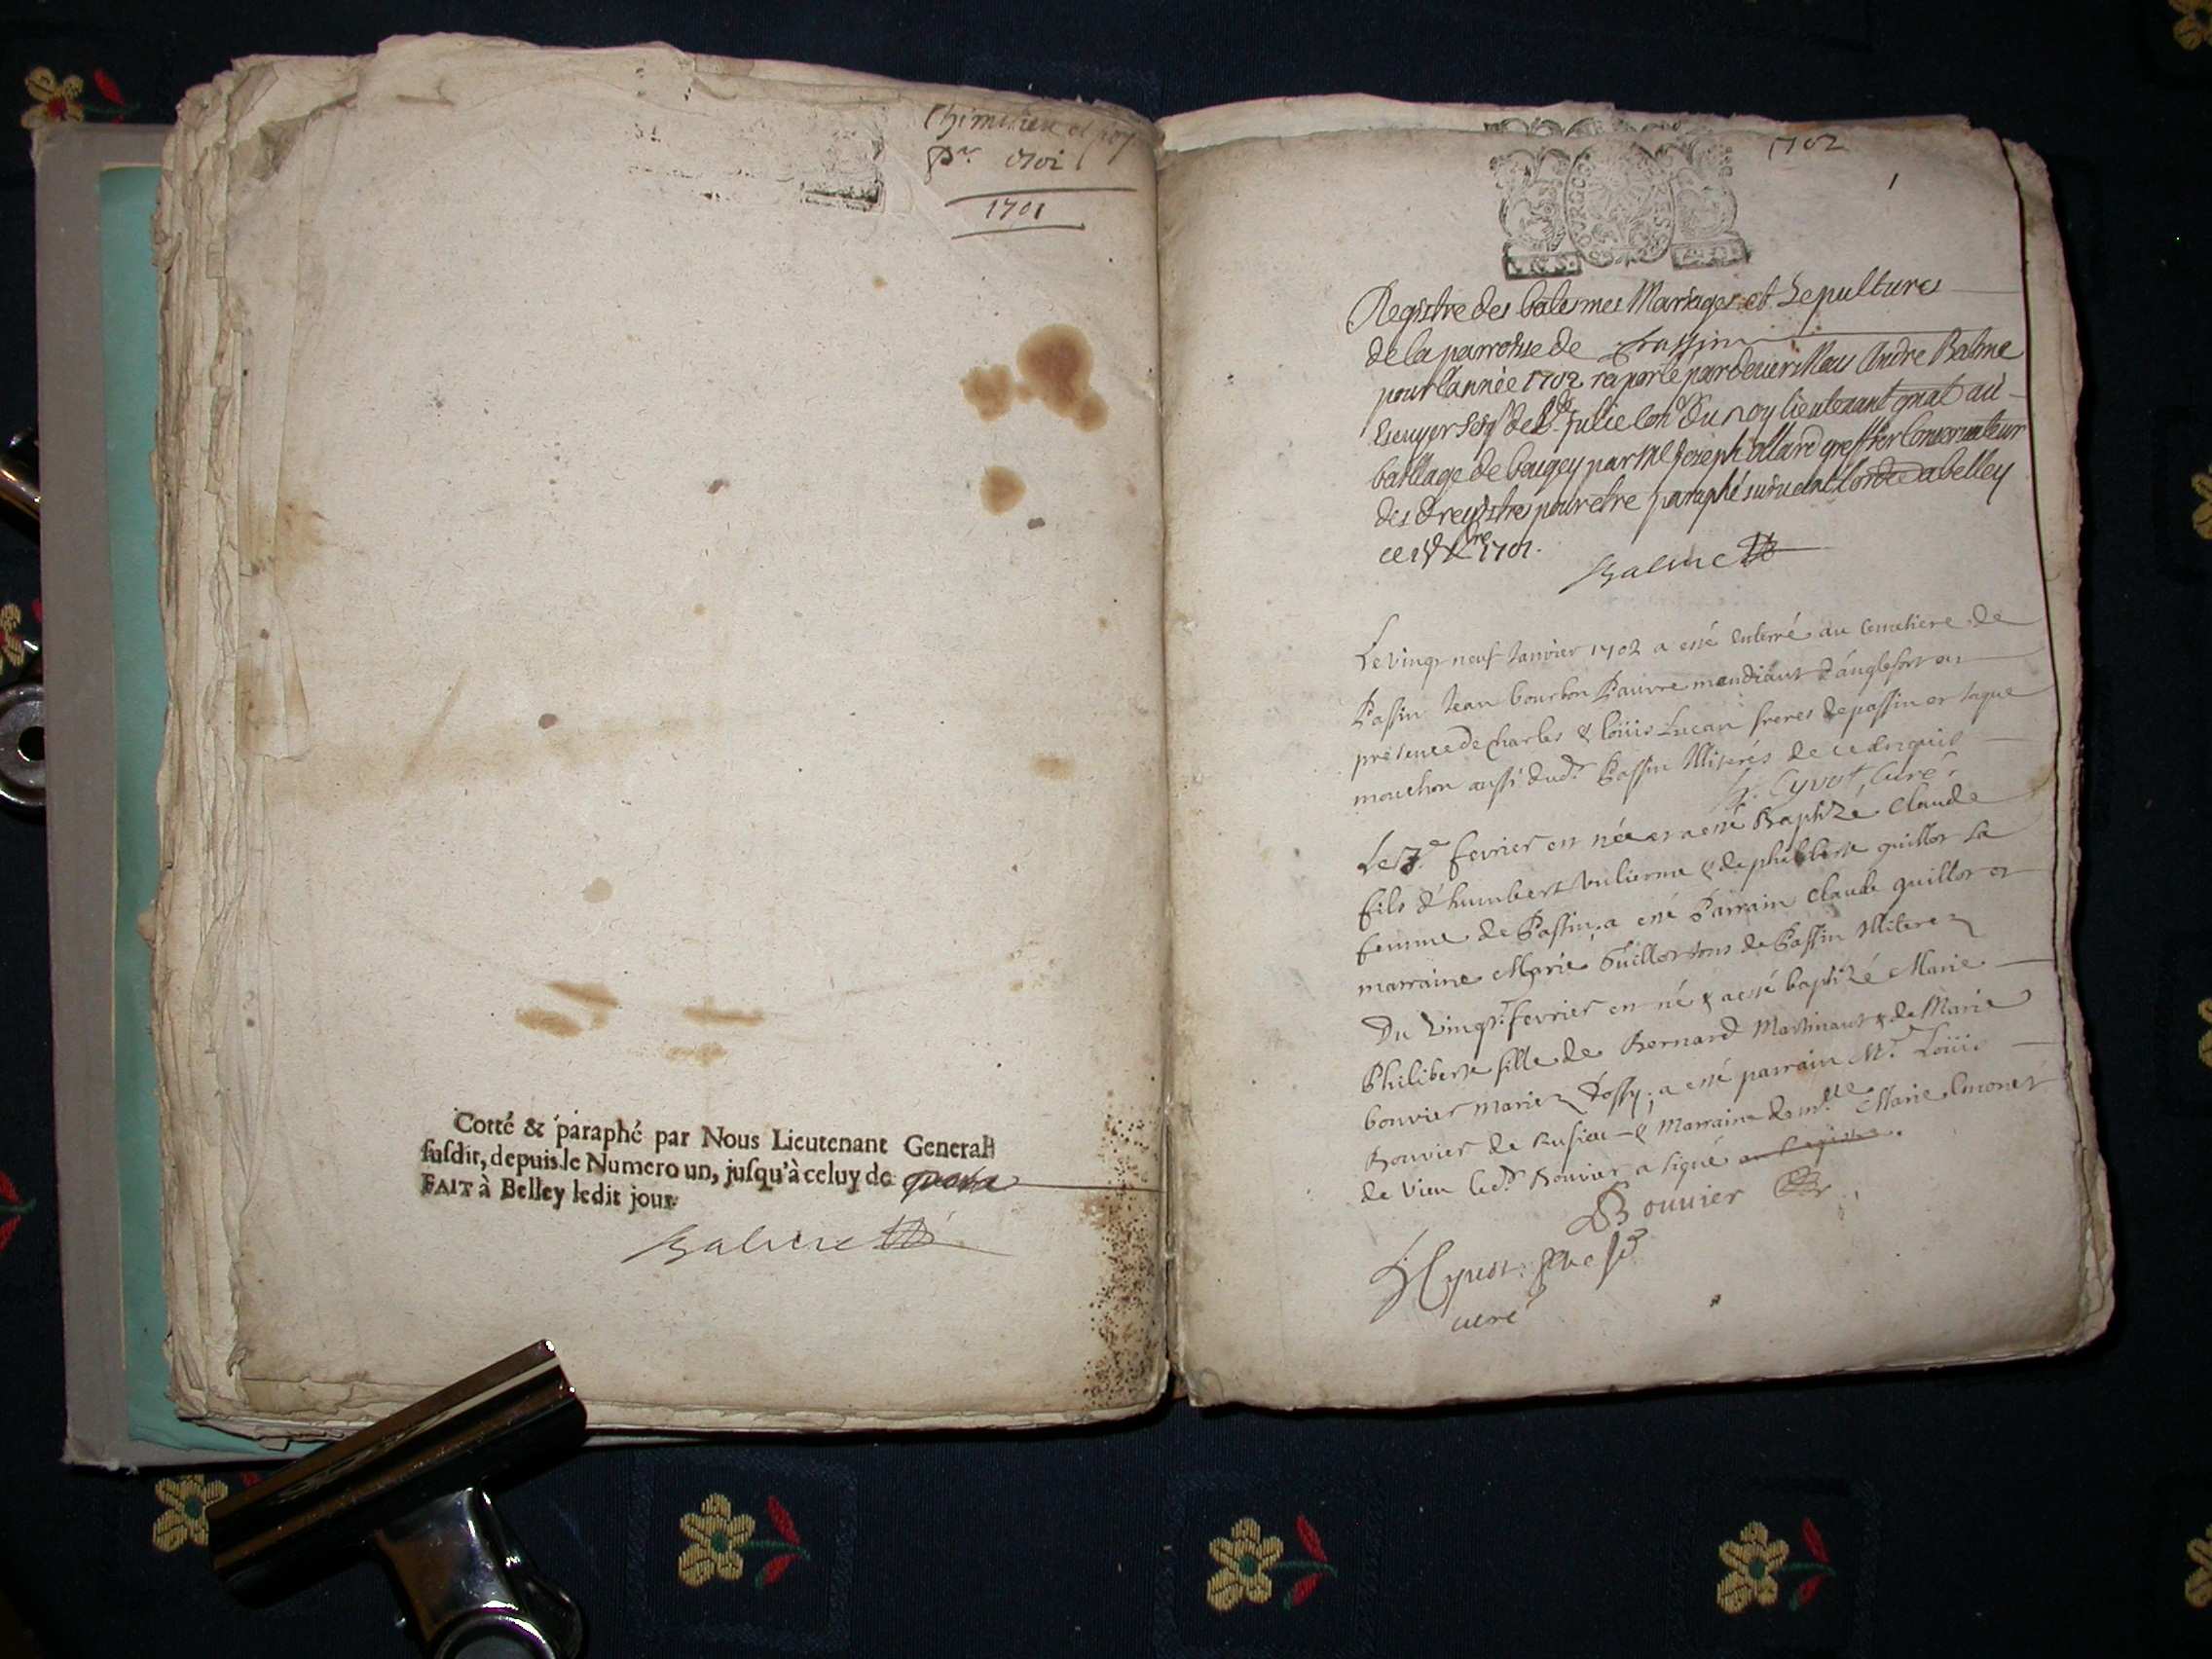 Chimilieu et poy
Pr 1701
1701
Cotté & paraphé par Nous Lieutenant General
susdit, depuis le Numero un, jusqu'à celuy de
FAIT à Belley ledit jour.
Balme
1702
1
BOURGOG
Registre des batesmes Mariages et Sepultures
de la parroisse de Passin
pour l'année 1702 raporté pardevers Nous Andre Balme
Escuyer Seigr de Ste Julie Conr du roy lieutenant gnal au
bailliage de bougey par Me Joseph Allard greffier Conservateur
des d registres pour etre paraphé suivant l'ordce a belley
ce 1701.
Balme
Le vingt neuf Janvier 1702 a esté enterré au cemetiere de
Passin Jean bourbon Pauvre mandiant d'anglefort en
presence de Charles & loüis Lucan freres de passin et Jaque
mouchon aussi dudt Passin Illiterés de ce enquis
Cyvot, Curé
Le 7e fevrier est née et a esté Baptizé Claude
fils d'humbert vuilierme & de philiberte guillot sa
femme de Passin, a esté Parrain Claude guillot et
marraine Marie Guillot tous de Passin Illiterez
Du vingt fevrier est né & a esté baptizé Marie
Philiberte fille de Bernard Martinant & de Marie
bouvier mariez d'ossy, a esté parrain Mr Loüis
Bouvier de Rusieu & Marraine demlle Marie Emonet
de Vieu ledt Bouvier a signé
Bouvier
Cyvot
curé